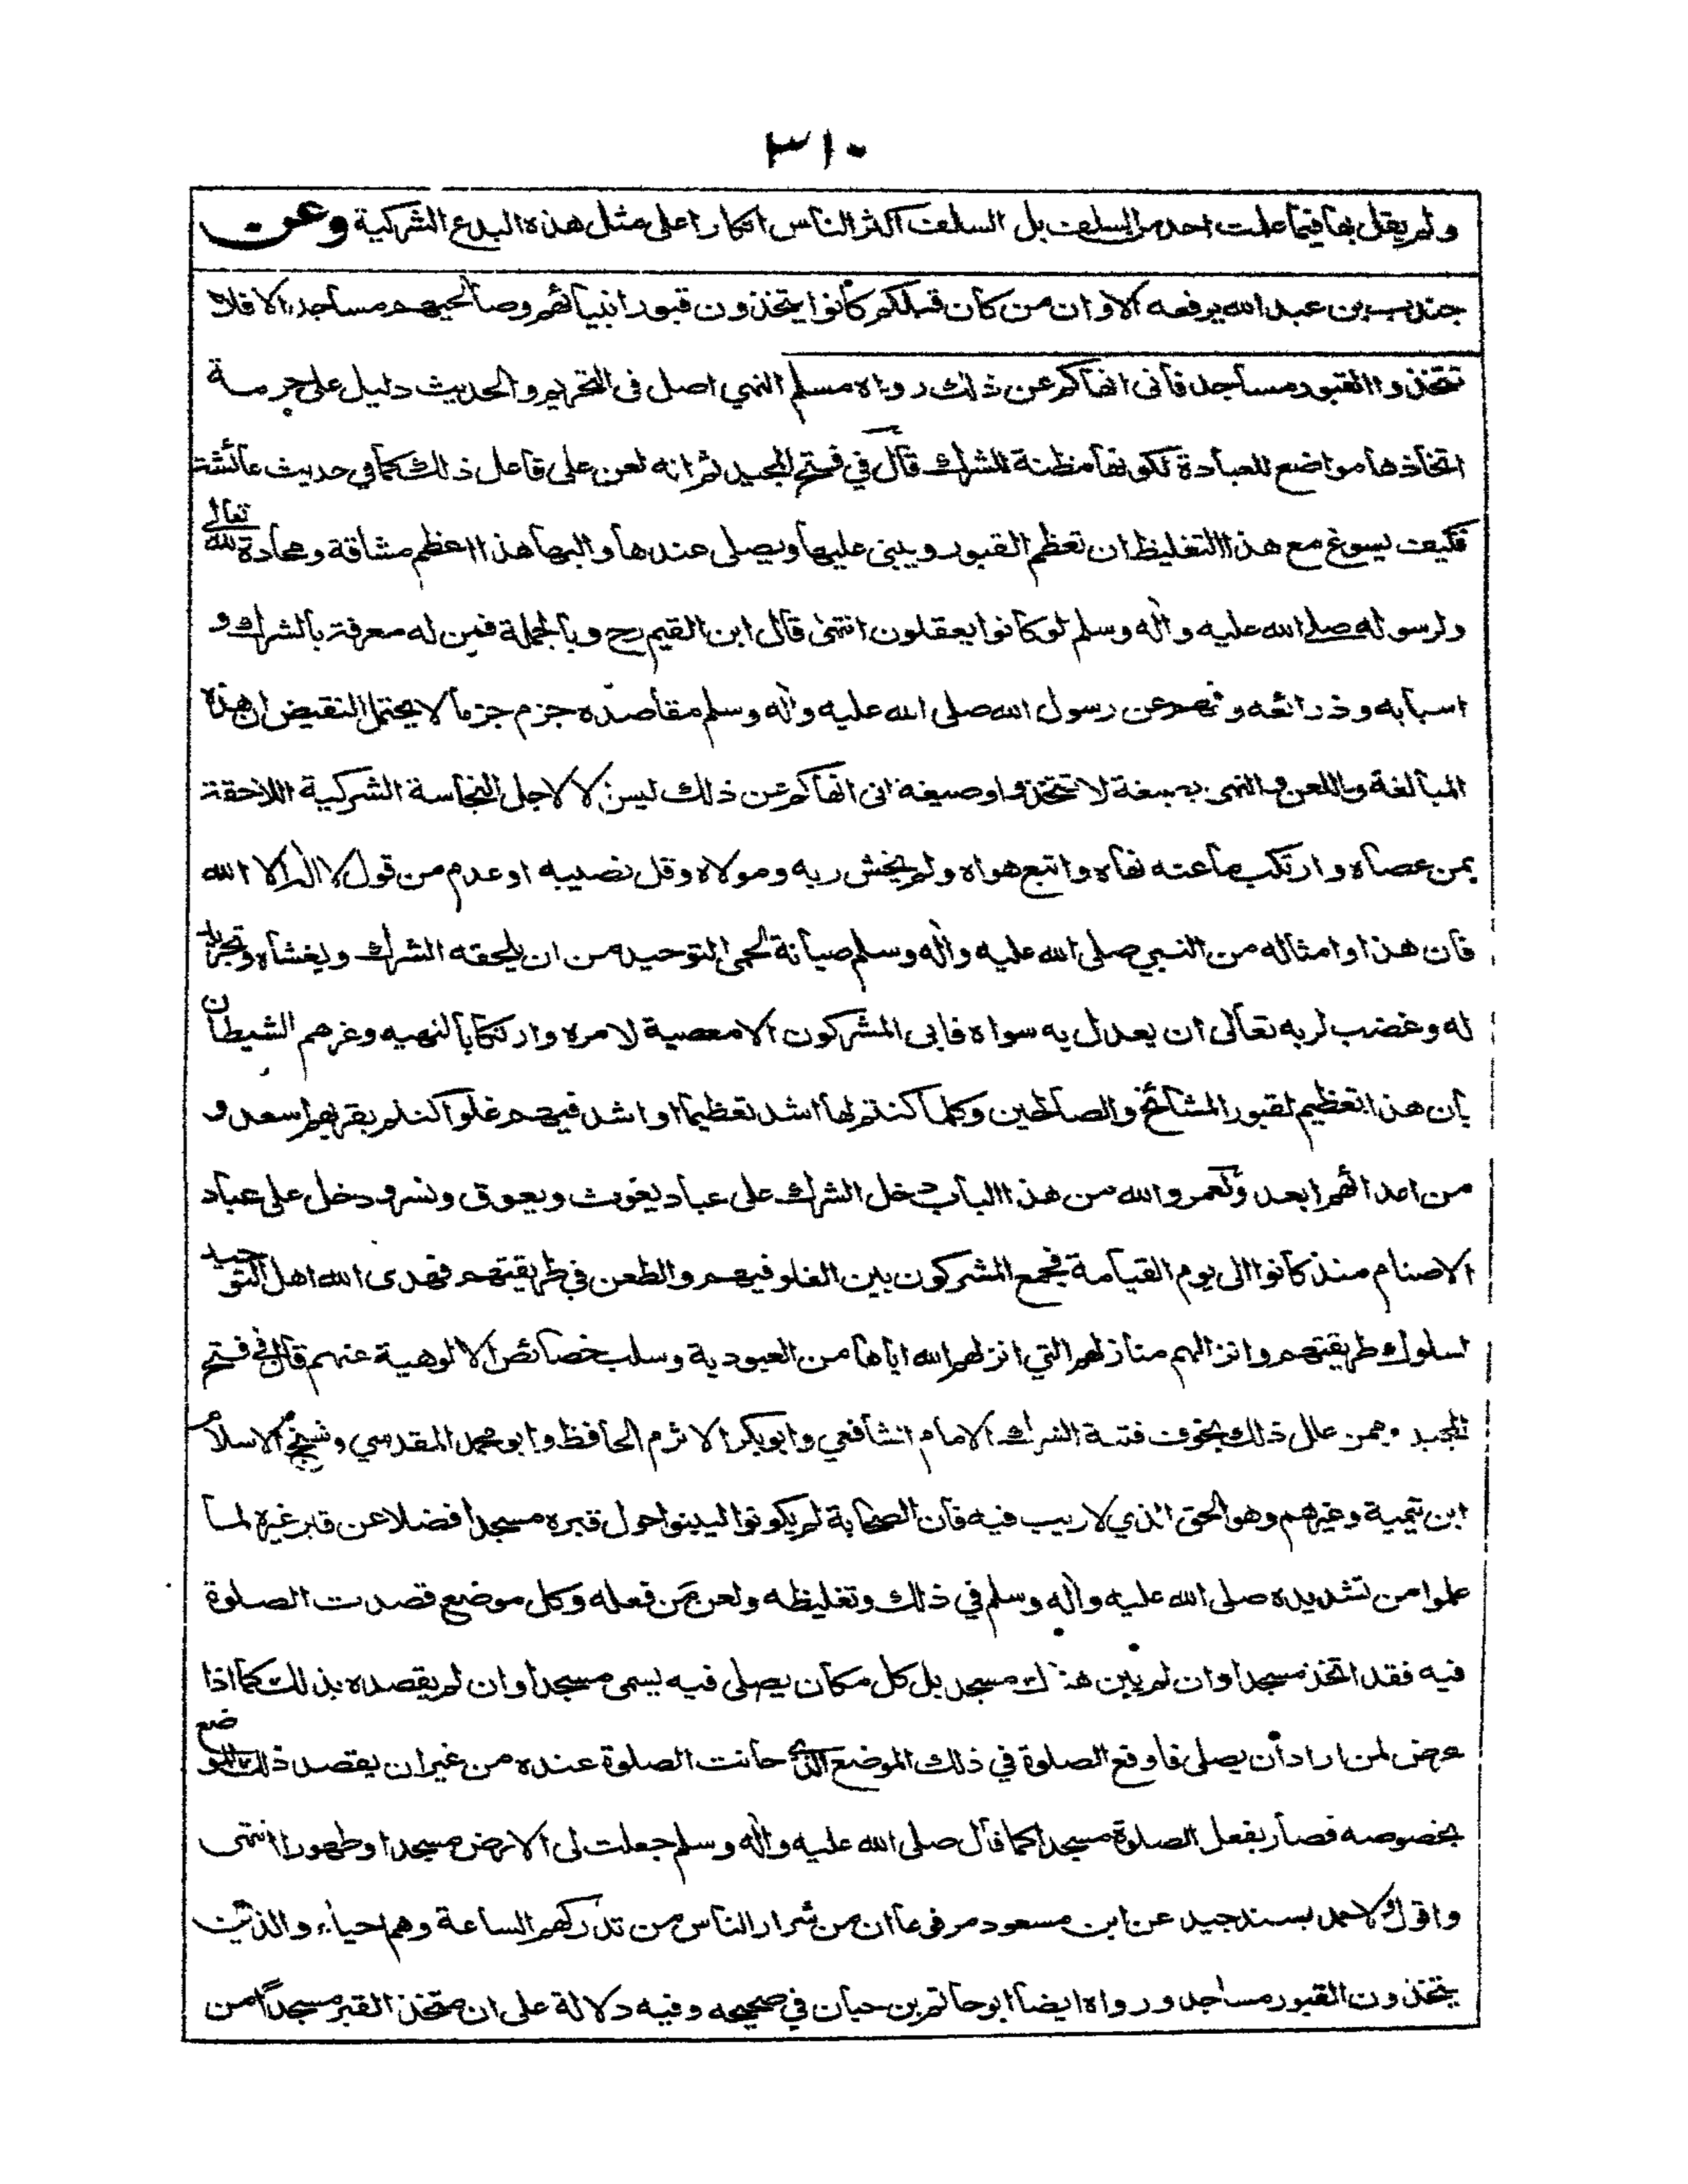 ٣١٠
ولم يقل بها فيما علمت احد من السلف بل السلف اكثر الناس انكارا على مثل هذه البدع الشركية وعن
جندب بن عبد الله يرفعه الا وان من كان قبلكم كانوا يتخذون قبور انبيائهم وصالحيهم مساجد الا فلا
تتخذوا القبور مساجد فاني انهاكم عن ذلك رواه مسلم النهي اصل في التحريم والحديث دليل على حرمة
اتخاذها مواضع للعبادة لكونها مظنة للشرك قال في فتح المجيد ثم انه لعن على فاعل ذلك كما في حديث عائشة
فكيف يسوغ مع هذا التغليظ ان تعظم القبور ويبنى عليها ويصلى عندها واليها هذا اعظم مشاقة ومحادة لله تعالى
ولرسوله صلى الله عليه وآله وسلم لو كانوا يعقلون انتهى قال ابن القيم رح وبالجملة فمن له معرفة بالشرك و
اسبابه وذرائعه وفهم عن رسول الله صلى الله عليه وآله وسلم مقاصده جزم جزما لا يحتمل النقيض ان هذه
المبالغة واللعن والنهي بصيغة لا تتخذوا وصيغة اني انهاكم عن ذلك ليس الا لاجل النجاسة الشركية اللاحقة
بمن عصاه وارتكب ما عنه نهاه واتبع هواه ولم يخش ربه ومولاه وقل نصيبه او عدم من قول لا اله الا الله
فان هذا وامثاله من النبي صلى الله عليه وآله وسلم صيانة لحمى التوحيد من ان يلحقه الشرك ويغشاه وتجريد
له وغضب لربه تعالى ان يعدل به سواه فابى المشركون الا معصية لامره وارتكابا لنهيه وغرهم الشيطان
بان هذا تعظيم لقبور المشائخ والصالحين وكلما كنتم لها اشد تعظيما واشد فيهم غلوا كنتم بقربهم اسعد و
من اعدائهم ابعد ولعمرو الله من هذا الباب دخل الشرك على عباد يغوث ويعوق ونسر ودخل على عباد
الاصنام منذ كانوا الى يوم القيامة فجمع المشركون بين الغلو فيهم والطعن في طريقتهم فهدى الله اهل التوحيد
لسلوك طريقتهم وانزالهم منازلهم التي انزلهم الله اياها من العبودية وسلب خصائص الالوهية عنهم قال في فتح
المجيد وممن علل ذلك بخوف فتنة الشرك الامام الشافعي وابو بكر الاثرم الحافظ وابو محمد المقدسي وشيخ الاسلام
ابن تيمية وغيرهم وهو الحق الذي لا ريب فيه فان الصحابة لم يكونوا ليبنوا حول قبره مسجدا فضلا عن قبر غيره لما
علموا من تشديده صلى الله عليه وآله وسلم في ذلك وتغليظه ولعن من فعله وكل موضع قصدت الصلوة
فيه فقد اتخذ مسجدا وان لم يبن هناك مسجد بل كل مكان يصلى فيه يسمى مسجدا وان لم يقصده بذلك كما اذا
عرض لمن اراد ان يصلي فاوقع الصلوة في ذلك الموضع الذي حانت الصلوة عنده من غير ان يقصد ذلك الموضع
بخصوصه فصار بفعل الصلوة مسجدا كما قال صلى الله عليه وآله وسلم جعلت لي الارض مسجدا وطهورا انتهى
واقول لاحمد بسند جيد عن ابن مسعود مرفوعا ان من شرار الناس من تدركهم الساعة وهم احياء والذين
يتخذون القبور مساجد ورواه ايضا ابو حاتم بن حبان في صحيحه وفيه دلالة على ان متخذ القبر مسجدًا من